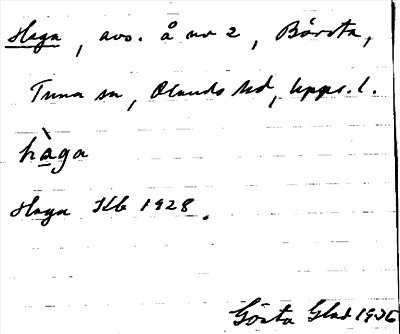 Haga, avs. å nr 2, Börsta,
Tuna sn, Olands hd, Upps. l.
hàga
Haga Jb 1928.
Gösta Glad 1936